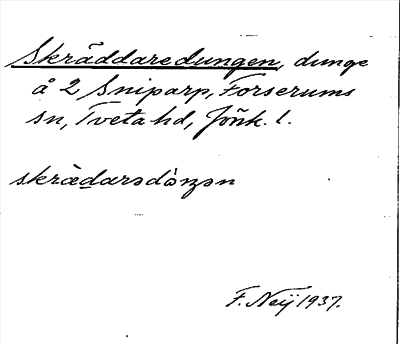 Skräddaredungen, dunge
å 2 Sniparp, Forserums
sn, Tveta hd, Jönk. l.
skrädarədåŋən
F. Neij 1937.